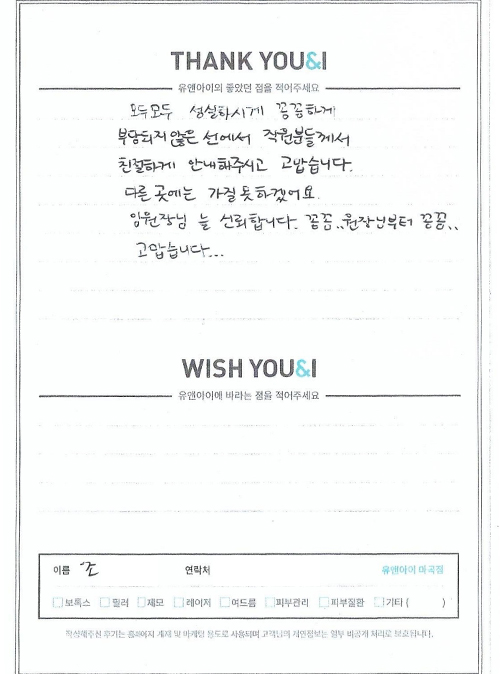 THANK YOU&I
유앤아이의 좋았던 점을 적어주세요
모두모두 성실하시게 꼼꼼하게
부담되지 않은 선에서 직원분들께서
친절하게 안내해주시고 고맙습니다.
다른 곳에는 가질 못하겠어요.
임원장님 늘 신뢰합니다. 꼼꼼.. 원장님부터 꼼꼼..
고맙습니다...
WISH YOU&I
유앤아이에 바라는 점을 적어주세요
이름 조 연락처 유앤아이 마곡점
보톡스 필러 제모 레이저 여드름 피부관리 피부질환 기타 ( )
작성해주신 후기는 홈페이지 게재 및 마케팅 용도로 사용되며 고객님의 개인정보는 일부 비공개 처리로 보호됩니다.